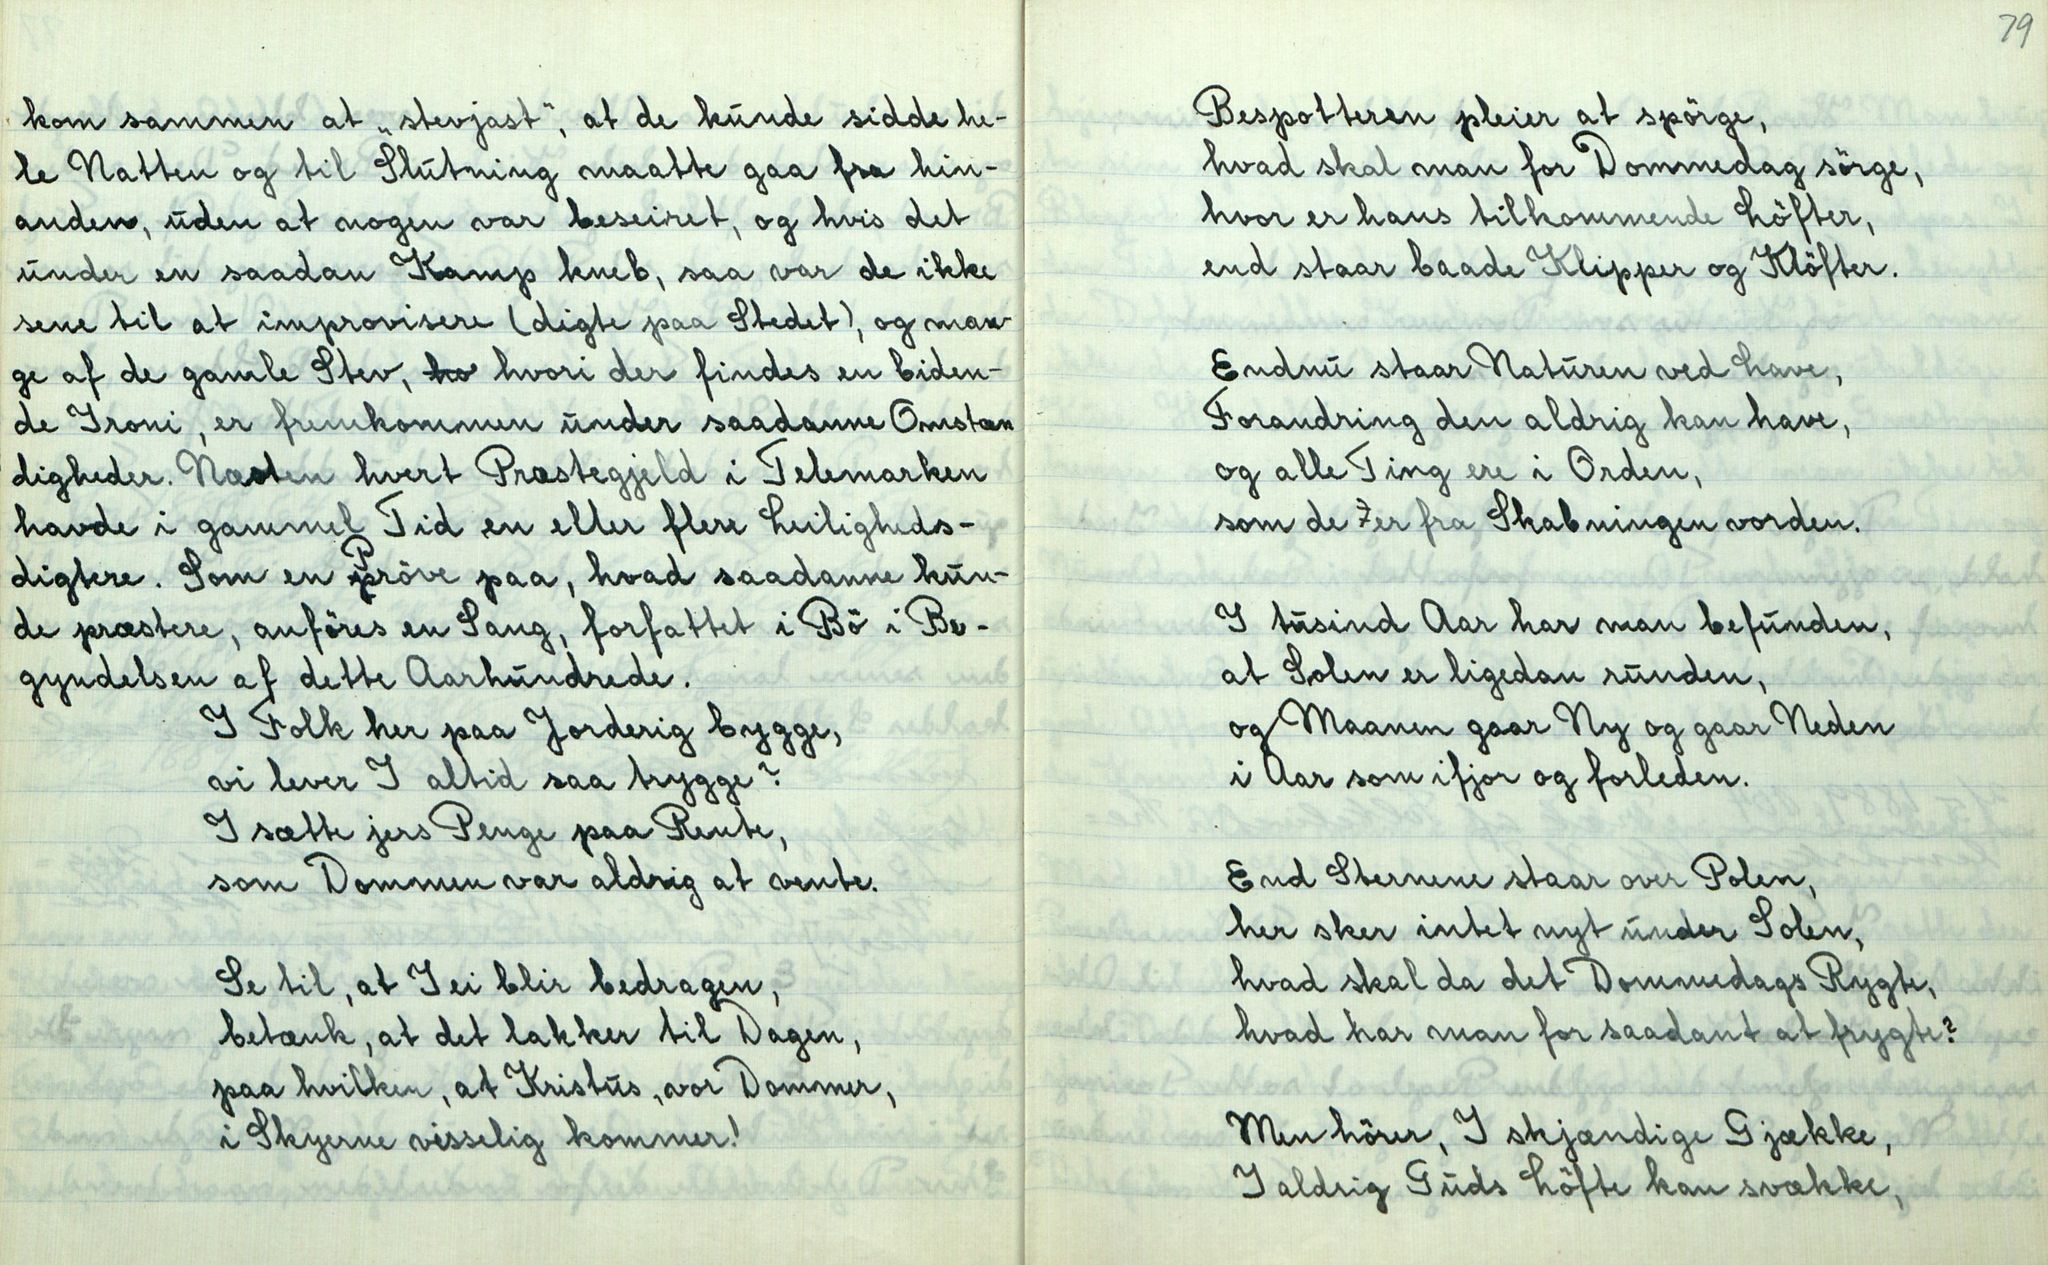 kom sammen at „stevjast“, at de kunde sidde he-
le Natten og til Slutning maatte gaa fra hin-
anden, uden at nogen var beseiret, og hvis det
under en saadan Kamp kneb, saa var de ikke
sene til at improvisere (digte paa Stedet), og man-
ge af de gamle Stev, hvori der findes en biden-
de Ironi, er fremkommen under saadanne Omstæn
digheder. Næsten hvert Præstegjeld i Telemarken
havde i gammel Tid en eller flere Leiligheds-
digtere. Som en Pröve paa, hvad saadanne kun-
de præstere, anföres en Sang, forfattet i Bö i Be-
gyndelsen af dette Aarhundrede.
I Folk her paa Jorderig bygge,
vi lever I altid saa trygge?
I sætte jers Penge paa Rente,
som Dommen var aldrig at vente.
Se til, at I ei blir bedragen,
betænk, at det lakker til Dagen,
paa hvilken, at Kristus, vor Dommer,
i Skyerne visselig kommer!
79
Bespotteren pleier at spörge,
hvad skal man for Dommedag sörge,
hvor er hans tilkommende Löfter,
end staar baade Klipper og Klöfter.
Endnu staar Naturen ved Lave,
Forandring den aldrig kan have,
og alle Ting ere i Orden,
som de er fra Skabningen vorden.
I tusind Aar har man befunden,
at Solen er ligedan runden,
og Maanen gaar Ny og gaar Neden
i Aar som ifjor og forleden.
End Sternene staar over Polen,
her sker intet nyt under Solen,
hvad skal da det Dommedags Rygte,
hvad har man for saadant at frygte?
Men hörer, I skjændige Gjække,
I aldrig Guds Löfte kan svække,